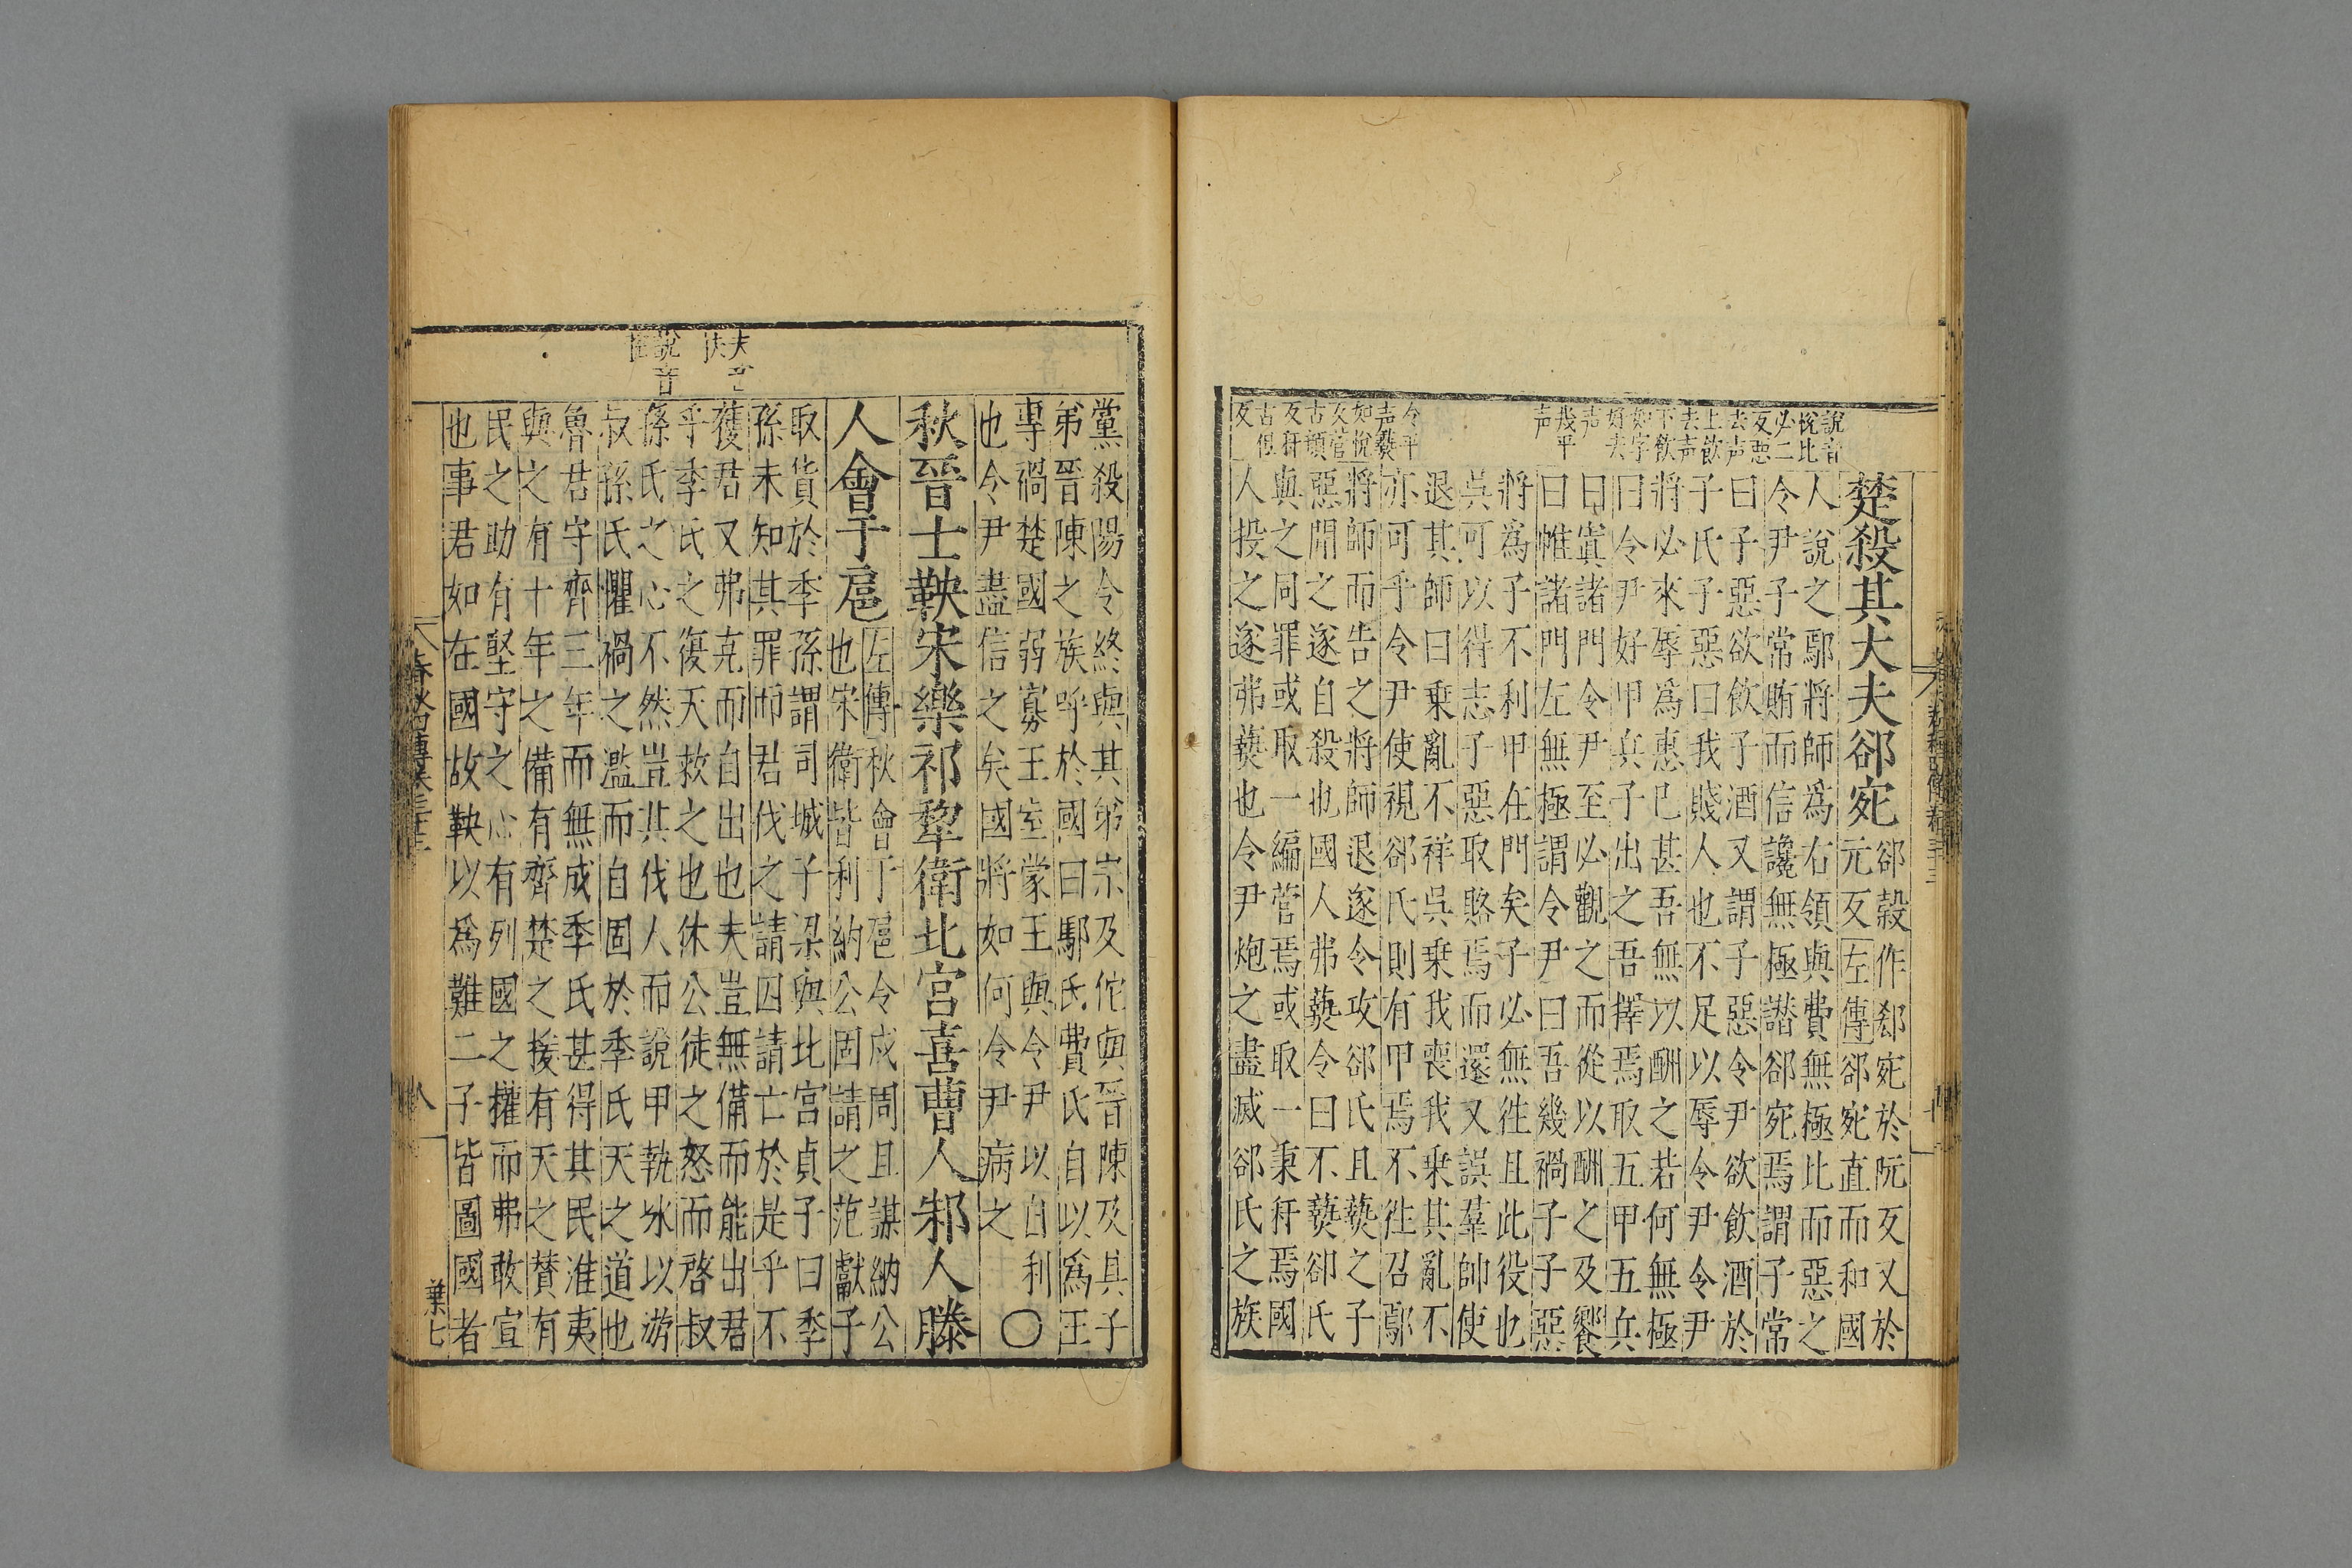 說音
悅比
必二
反惡
去声
上飲
去声
下飲
如字
好去
声
幾平
声
令平
声爇
如悅
反菅
古頑
反秆
古但
反
楚殺其大夫郤宛
郤穀作郄宛於阮反又於
元反左傳郤宛直而和國
人說之鄢將師為右領與費無極比而惡之
令尹子常賄而信讒無極譖郤宛焉謂子常
曰子惡欲飲子酒又謂子惡令尹欲飲酒於
子氏子惡曰我賤人也不足以辱令尹令尹
將必來辱為惠已甚吾無以酬之若何無極
曰令尹好甲兵子出之吾擇焉取五甲五兵
曰寘諸門令尹至必觀之而從以酬之及饗
日帷諸門左無極謂令尹曰吾幾禍子子惡
將為子不利甲在門矣子必無徃且此役也
吳可以得志子惡取賂焉而還又誤羣帥使
退其師曰乗亂不祥吳乗我喪我乗其亂不
亦可乎令尹使視郤氏則有甲焉不徃召鄢
將師而告之將師退遂令攻郤氏且爇之子
惡聞之遂自殺也國人弗爇令曰不爇郤氏
與之同罪或取一編菅焉或取一秉秆焉國
人投之遂弗爇也令尹炮之盡滅郤氏之族
夫音
扶
說音
黨殺陽令終與其弟完及佗與晉陳及其子
弟晉陳之族呼於國曰鄢氏費氏自以為王
專禍楚國弱寡王室蒙王與令尹以自利
也令尹盡信之矣國將如何令尹病之 〇
秋晉士鞅宋樂祁犂衛北宮喜曹人邾人滕
人會于扈
左傳秋會于扈令戍周且謀納公
也宋衛皆利納公固請之范獻子
取貨於季孫謂司城子梁與北宮貞子曰季
孫未知其罪而君伐之請囚請亡於是乎不
獲君又弗克而自出也夫豈無備而能出君
乎季氏之復天救之也休公徒之怒而啓叔
孫氏之心不然豈其伐人而說甲執冰以游
叔孫氏懼禍之濫而自同於季氏天之道也
魯君守齊三年而無成季氏甚得其民淮夷
與之有十年之備有齊楚之援有天之賛有
民之助有堅守之心有列國之權而弗敢宣
也事君如在國故鞅以為難二子皆圖國者
春秋四傳卷三十三
八
葉七